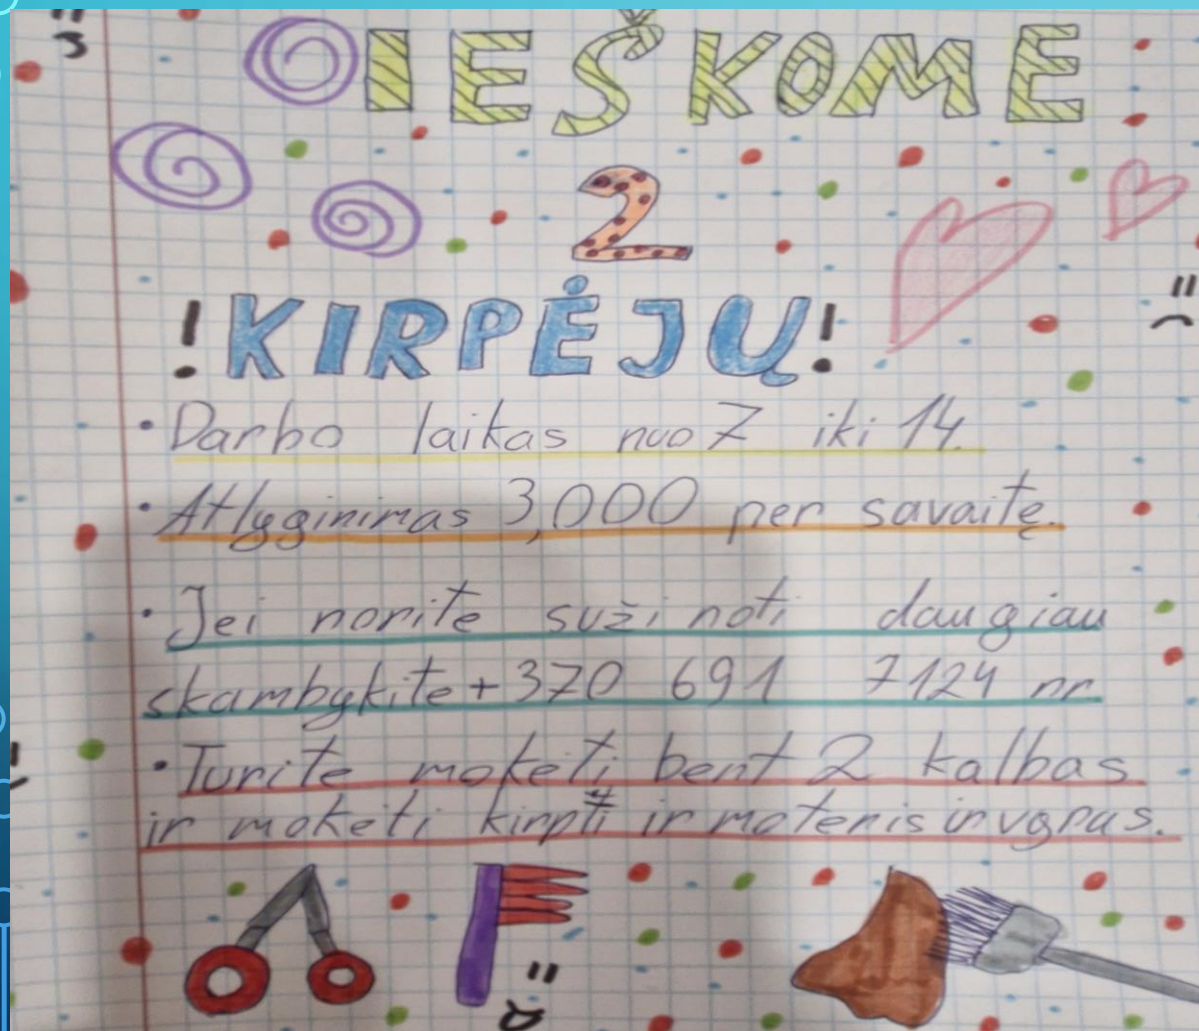 IEŠKOME
2
!KIRPĖJŲ!
• Darbo laikas nuo 7 iki 14.
• Atlyginimas 3,000 per savaitę.
• Jei norite sužinoti daugiau
skambykite +370 691 7124 nr
• Turite moketi bent 2 kalbas
ir moketi kirpti ir moteris ir vyrus.